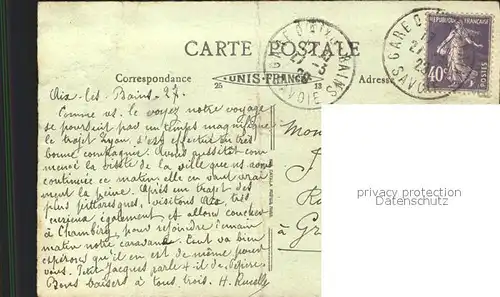 CARTE POSTALE
Correspondance
25 UNIS-FRANCE 13
Adresse
GARE D'AIX-LES-BAINS
SAVOIE
POSTES
40c
Aix-les-Bains - 27.
Comme vs. le voyez notre voyage
se poursuit par un temps magnifique
le trajet Lyon, s'est effectué en très
bonne compagnie. Nous aussitôt com-
mencé la visite de la ville que ns avons
continuée ce matin elle en vaut vrai
ment la peine. Après un trajet des
plus pittoresques, visitons Aix, très
curieux également et allons coucher
à Chambéry, pour rejoindre demain
matin notre caravane. Tout va bien
espérons qu'il en est de même pour
vous. Petit Jacques parle-t-il de Pépère.
Bons baisers à tous trois. H.
Mon
Gr
privacy protection